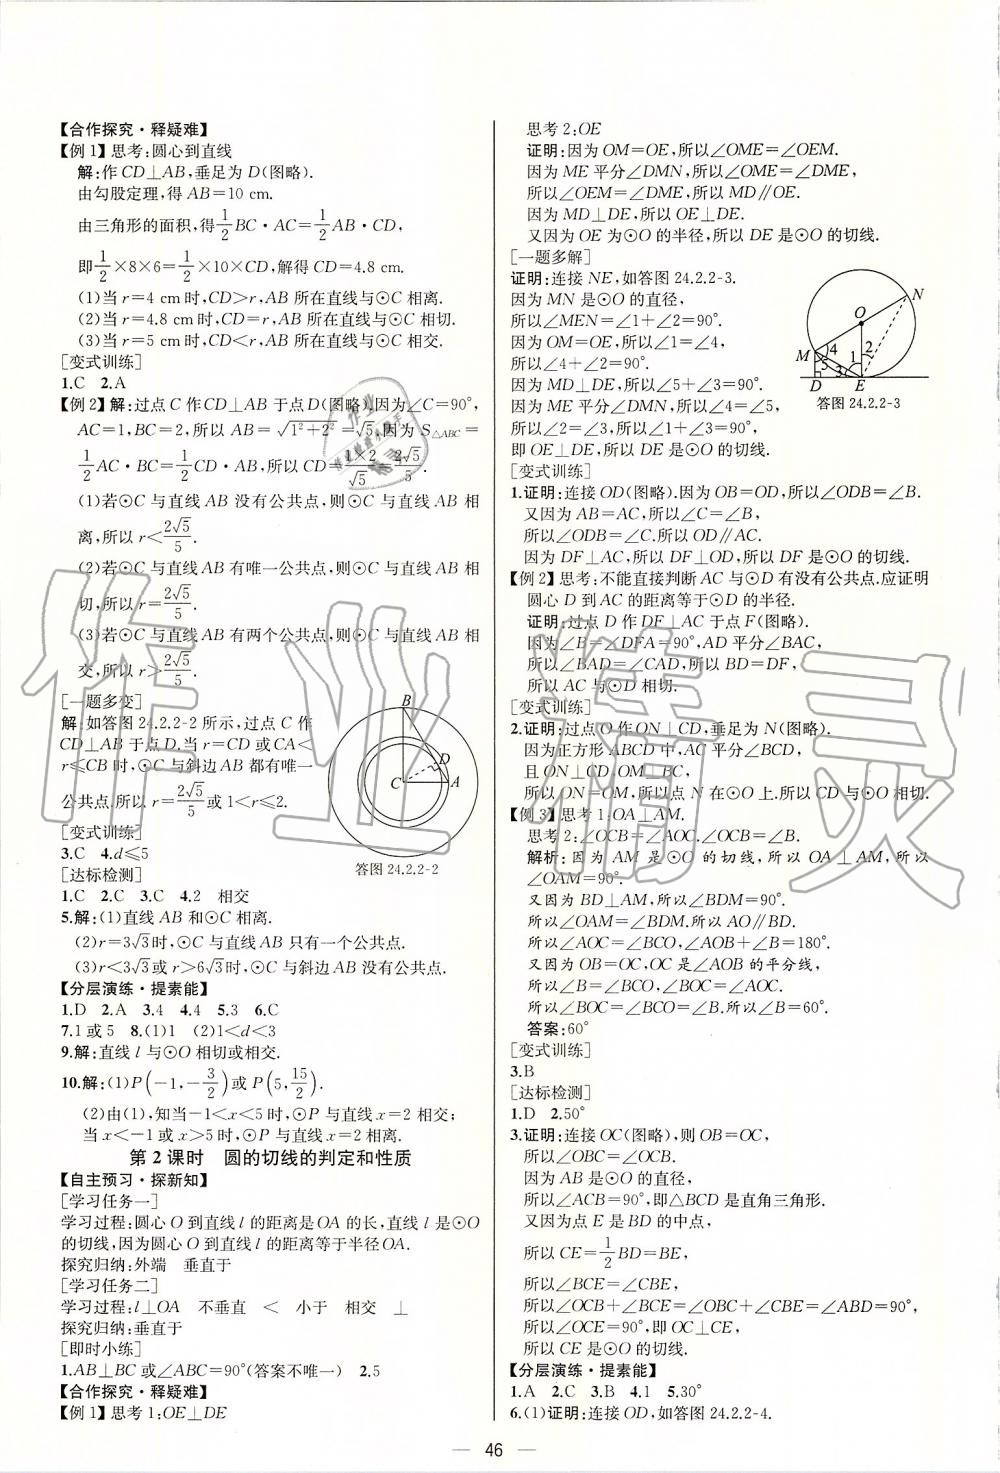 【合作探究·释疑难】
【例1】思考:圆心到直线
解:作CD⊥AB,垂足为D(图略).
由勾股定理,得AB=10 cm.
由三角形的面积,得1/2BC·AC=1/2AB·CD,
即1/2×8×6=1/2×10×CD,解得CD=4.8 cm.
(1)当r=4 cm时,CD>r,AB所在直线与⊙C相离.
(2)当r=4.8 cm时,CD=r,AB所在直线与⊙C相切.
(3)当r=5 cm时,CD<r,AB所在直线与⊙C相交.
[变式训练]
1.C 2.A
【例2】解:过点C作CD⊥AB于点D(图略).因为∠C=90°,
AC=1,BC=2,所以AB=√(1²+2²)=√5.因为S△ABC=
1/2AC·BC=1/2CD·AB,所以CD=(1×2)/√5=2√5/5.
(1)若⊙C与直线AB没有公共点,则⊙C与直线AB相
离,所以r<2√5/5.
(2)若⊙C与直线AB有唯一公共点,则⊙C与直线AB相
切,所以r=2√5/5.
(3)若⊙C与直线AB有两个公共点,则⊙C与直线AB相
交,所以r>2√5/5.
[一题多变]
解:如答图24.2.2-2所示,过点C作
CD⊥AB于点D.当r=CD或CA<
r≤CB时,⊙C与斜边AB都有唯一
公共点,所以r=2√5/5或1<r≤2.
B
C
D
A
答图24.2.2-2
[变式训练]
3.C 4.d≤5
[达标检测]
1.C 2.C 3.C 4.2 相交
5.解:(1)直线AB和⊙C相离.
(2)r=3√3时,⊙C与直线AB只有一个公共点.
(3)r<3√3或r>6√3时,⊙C与斜边AB没有公共点.
【分层演练·提素能】
1.D 2.A 3.4 4.4 5.3 6.C
7.1或5 8.(1)1 (2)1<d<3
9.解:直线l与⊙O相切或相交.
10.解:(1)P(-1,-3/2)或P(5,15/2).
(2)由(1),知当-1<x<5时,⊙P与直线x=2相交;
当x<-1或x>5时,⊙P与直线x=2相离.
第2课时 圆的切线的判定和性质
【自主预习·探新知】
[学习任务一]
学习过程:圆心O到直线l的距离是OA的长,直线l是⊙O
的切线,因为圆心O到直线l的距离等于半径OA.
探究归纳:外端 垂直于
[学习任务二]
学习过程:l⊥OA 不垂直 < 小于 相交 ⊥
探究归纳:垂直于
[即时小练]
1.AB⊥BC或∠ABC=90°(答案不唯一) 2.5
【合作探究·释疑难】
【例1】思考1:OE⊥DE
思考2:OE
证明:因为OM=OE,所以∠OME=∠OEM.
因为ME平分∠DMN,所以∠OME=∠DME,
所以∠OEM=∠DME,所以MD∥OE.
因为MD⊥DE,所以OE⊥DE.
又因为OE为⊙O的半径,所以DE是⊙O的切线.
[一题多解]
证明:连接NE,如答图24.2.2-3.
因为MN是⊙O的直径,
所以∠MEN=∠1+∠2=90°.
因为OM=OE,所以∠1=∠4,
所以∠4+∠2=90°.
因为MD⊥DE,所以∠5+∠3=90°.
因为ME平分∠DMN,所以∠4=∠5,
所以∠2=∠3,所以∠1+∠3=90°,
即OE⊥DE,所以DE是⊙O的切线.
N
O
M
4
5
3
1
2
D
E
答图24.2.2-3
[变式训练]
1.证明:连接OD(图略).因为OB=OD,所以∠ODB=∠B.
又因为AB=AC,所以∠C=∠B,
所以∠ODB=∠C.所以OD∥AC.
因为DF⊥AC,所以DF⊥OD,所以DF是⊙O的切线.
【例2】思考:不能直接判断AC与⊙D有没有公共点.应证明
圆心D到AC的距离等于⊙D的半径.
证明:过点D作DF⊥AC于点F(图略).
因为∠B=∠DFA=90°,AD平分∠BAC,
所以∠BAD=∠CAD,所以BD=DF,
所以AC与⊙D相切.
[变式训练]
2.证明:过点O作ON⊥CD,垂足为N(图略).
因为正方形ABCD中,AC平分∠BCD,
且ON⊥CD,OM⊥BC,
所以ON=OM,所以点N在⊙O上.所以CD与⊙O相切.
【例3】思考1:OA⊥AM.
思考2:∠OCB=∠AOC.∠OCB=∠B.
解析:因为AM是⊙O的切线,所以OA⊥AM,所以
∠OAM=90°.
又因为BD⊥AM,所以∠BDM=90°.
所以∠OAM=∠BDM.所以AO∥BD.
所以∠AOC=∠BCO,∠AOB+∠B=180°.
又因为OB=OC,OC是∠AOB的平分线,
所以∠B=∠BCO,∠BOC=∠AOC.
所以∠BOC=∠BCO=∠B.所以∠B=60°.
答案:60°
[变式训练]
3.B
[达标检测]
1.D 2.50°
3.证明:连接OC(图略),则OB=OC,
所以∠OBC=∠OCB.
因为AB是⊙O的直径,
所以∠ACB=90°,即△BCD是直角三角形.
又因为点E是BD的中点,
所以CE=1/2BD=BE,
所以∠BCE=∠CBE,
所以∠OCB+∠BCE=∠OBC+∠CBE=∠ABD=90°,
所以∠OCE=90°,即OC⊥CE,
所以CE是⊙O的切线.
【分层演练·提素能】
1.A 2.C 3.B 4.1 5.30°
6.(1)证明:连接OD,如答图24.2.2-4.
— 46 —
作业精灵